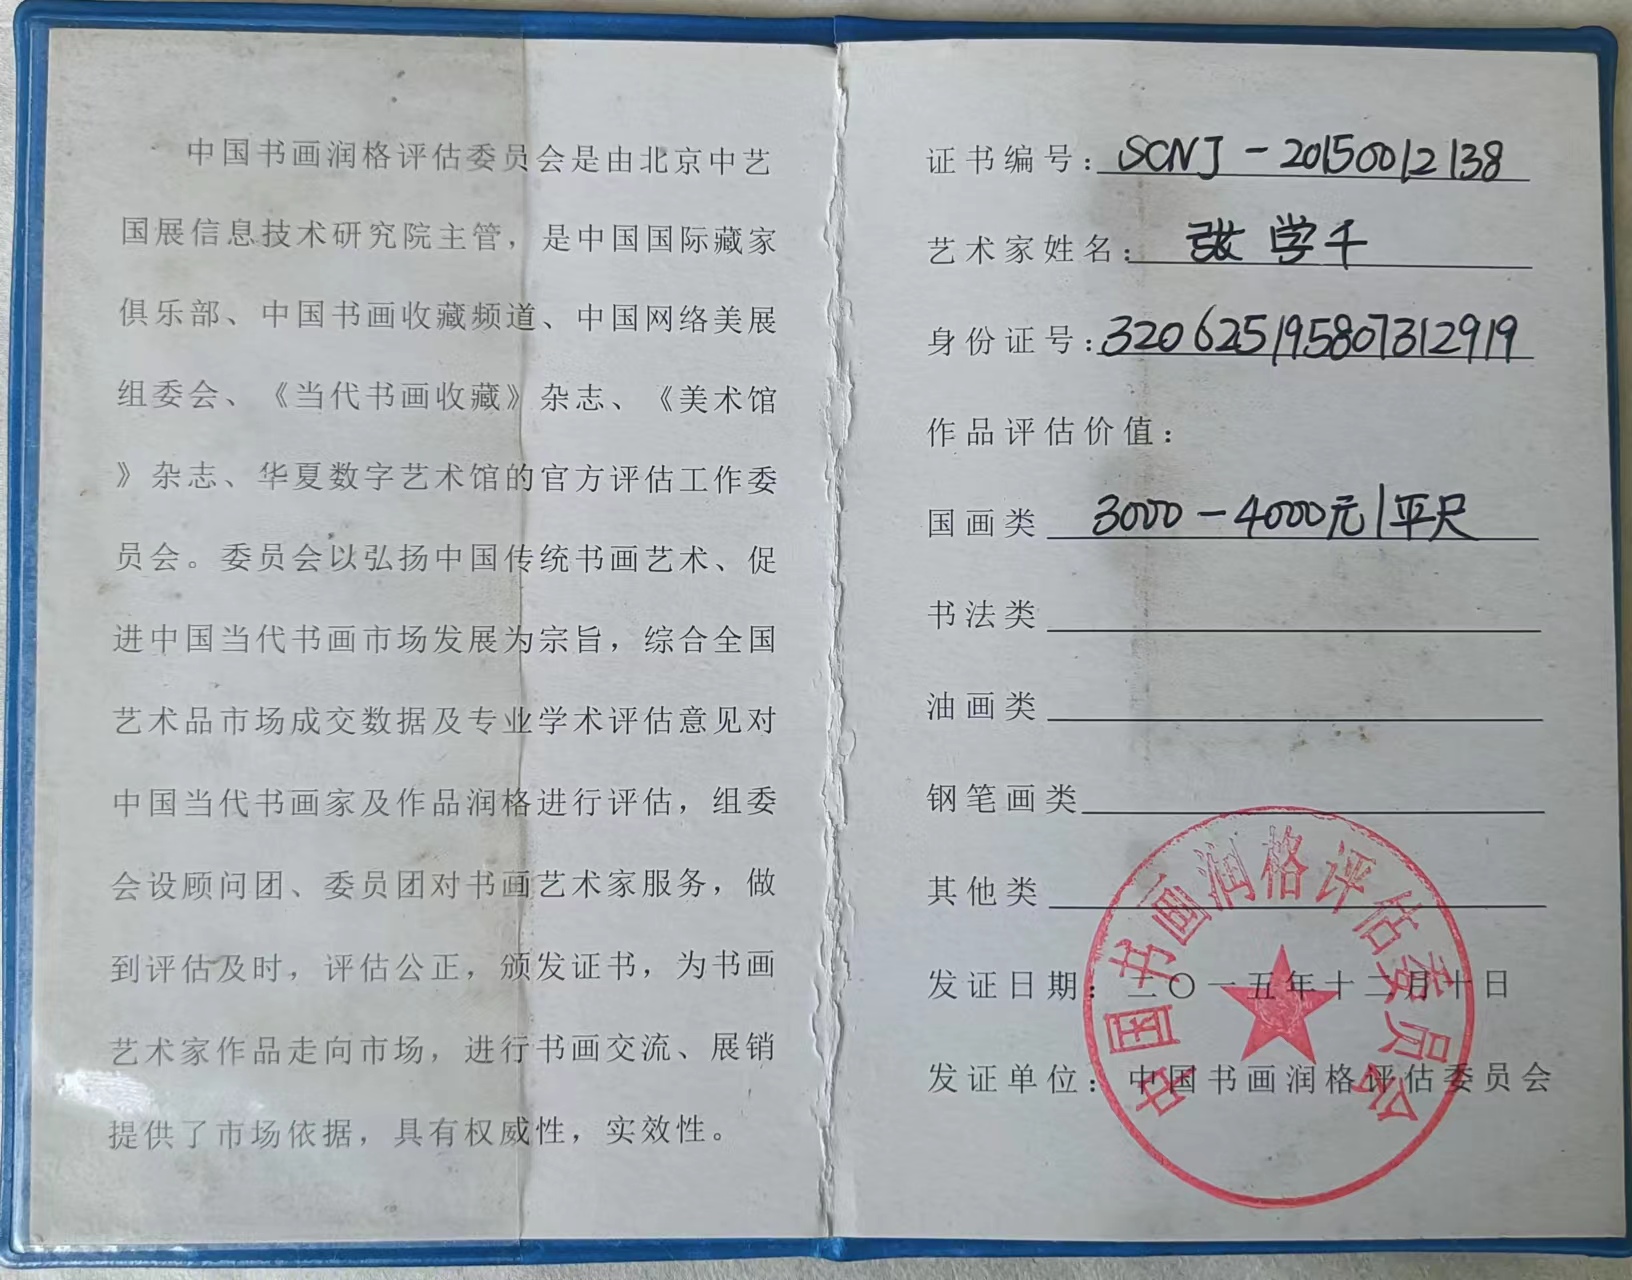 中国书画润格评估委员会是由北京中艺
国展信息技术研究院主管，是中国国际藏家
俱乐部、中国书画收藏频道、中国网络美展
组委会、《当代书画收藏》杂志、《美术馆
》杂志、华夏数字艺术馆的官方评估工作委
员会。委员会以弘扬中国传统书画艺术、促
进中国当代书画市场发展为宗旨，综合全国
艺术品市场成交数据及专业学术评估意见对
中国当代书画家及作品润格进行评估，组委
会设顾问团、委员团对书画艺术家服务，做
到评估及时，评估公正，颁发证书，为书画
艺术家作品走向市场，进行书画交流、展销
提供了市场依据，具有权威性，实效性。
证书编号：SCNJ-20150012138
艺术家姓名：张学千
身份证号：320625195807312919
作品评估价值：
国画类 3000-4000元/平尺
书法类
油画类
钢笔画类
其他类
发证日期：二〇一五年十二月十日
发证单位：中国书画润格评估委员会
中国书画润格评估委员会